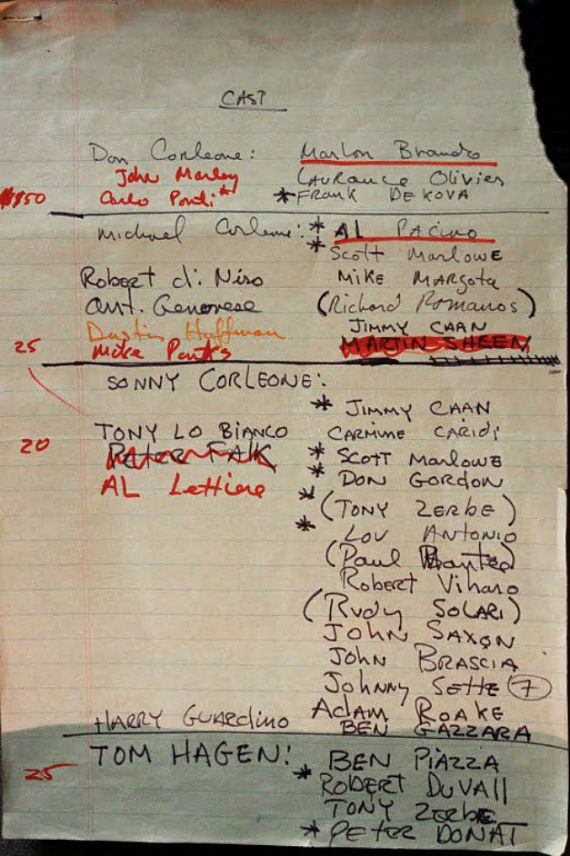 CAST
Don Corleone: Marlon Brando
John Marley LAURANCE OLIVIER
Carlo Ponti* *FRANK DEKOVA
Michael Corleone: * AL PACINO
* Scott MARLOWE
Robert di Niro MIKE MARGOTA
Ant. Genovese (Richard Romanos)
Dustin Hoffman JIMMY CAAN
25 Mike Parks MARTIN SHEEN
SONNY CORLEONE:
* JIMMY CAAN
TONY LO BIANCO CARMINE CARIDI
20 PETER FALK * SCOTT MARLOWE
AL Lettiere * DON GORDON
* (TONY ZERBE)
* LOU ANTONIO
(Paul
Robert Viharo
(RUDY SOLARI)
JOHN SAXON
JOHN BRASCIA
Johnny Sette 7
Adam ROAKE
HARRY GUARDINO BEN GAZZARA
TOM HAGEN: BEN PIAZZA
25 * ROBERT DUVALL
TONY ZERBE
* PETER DONAT